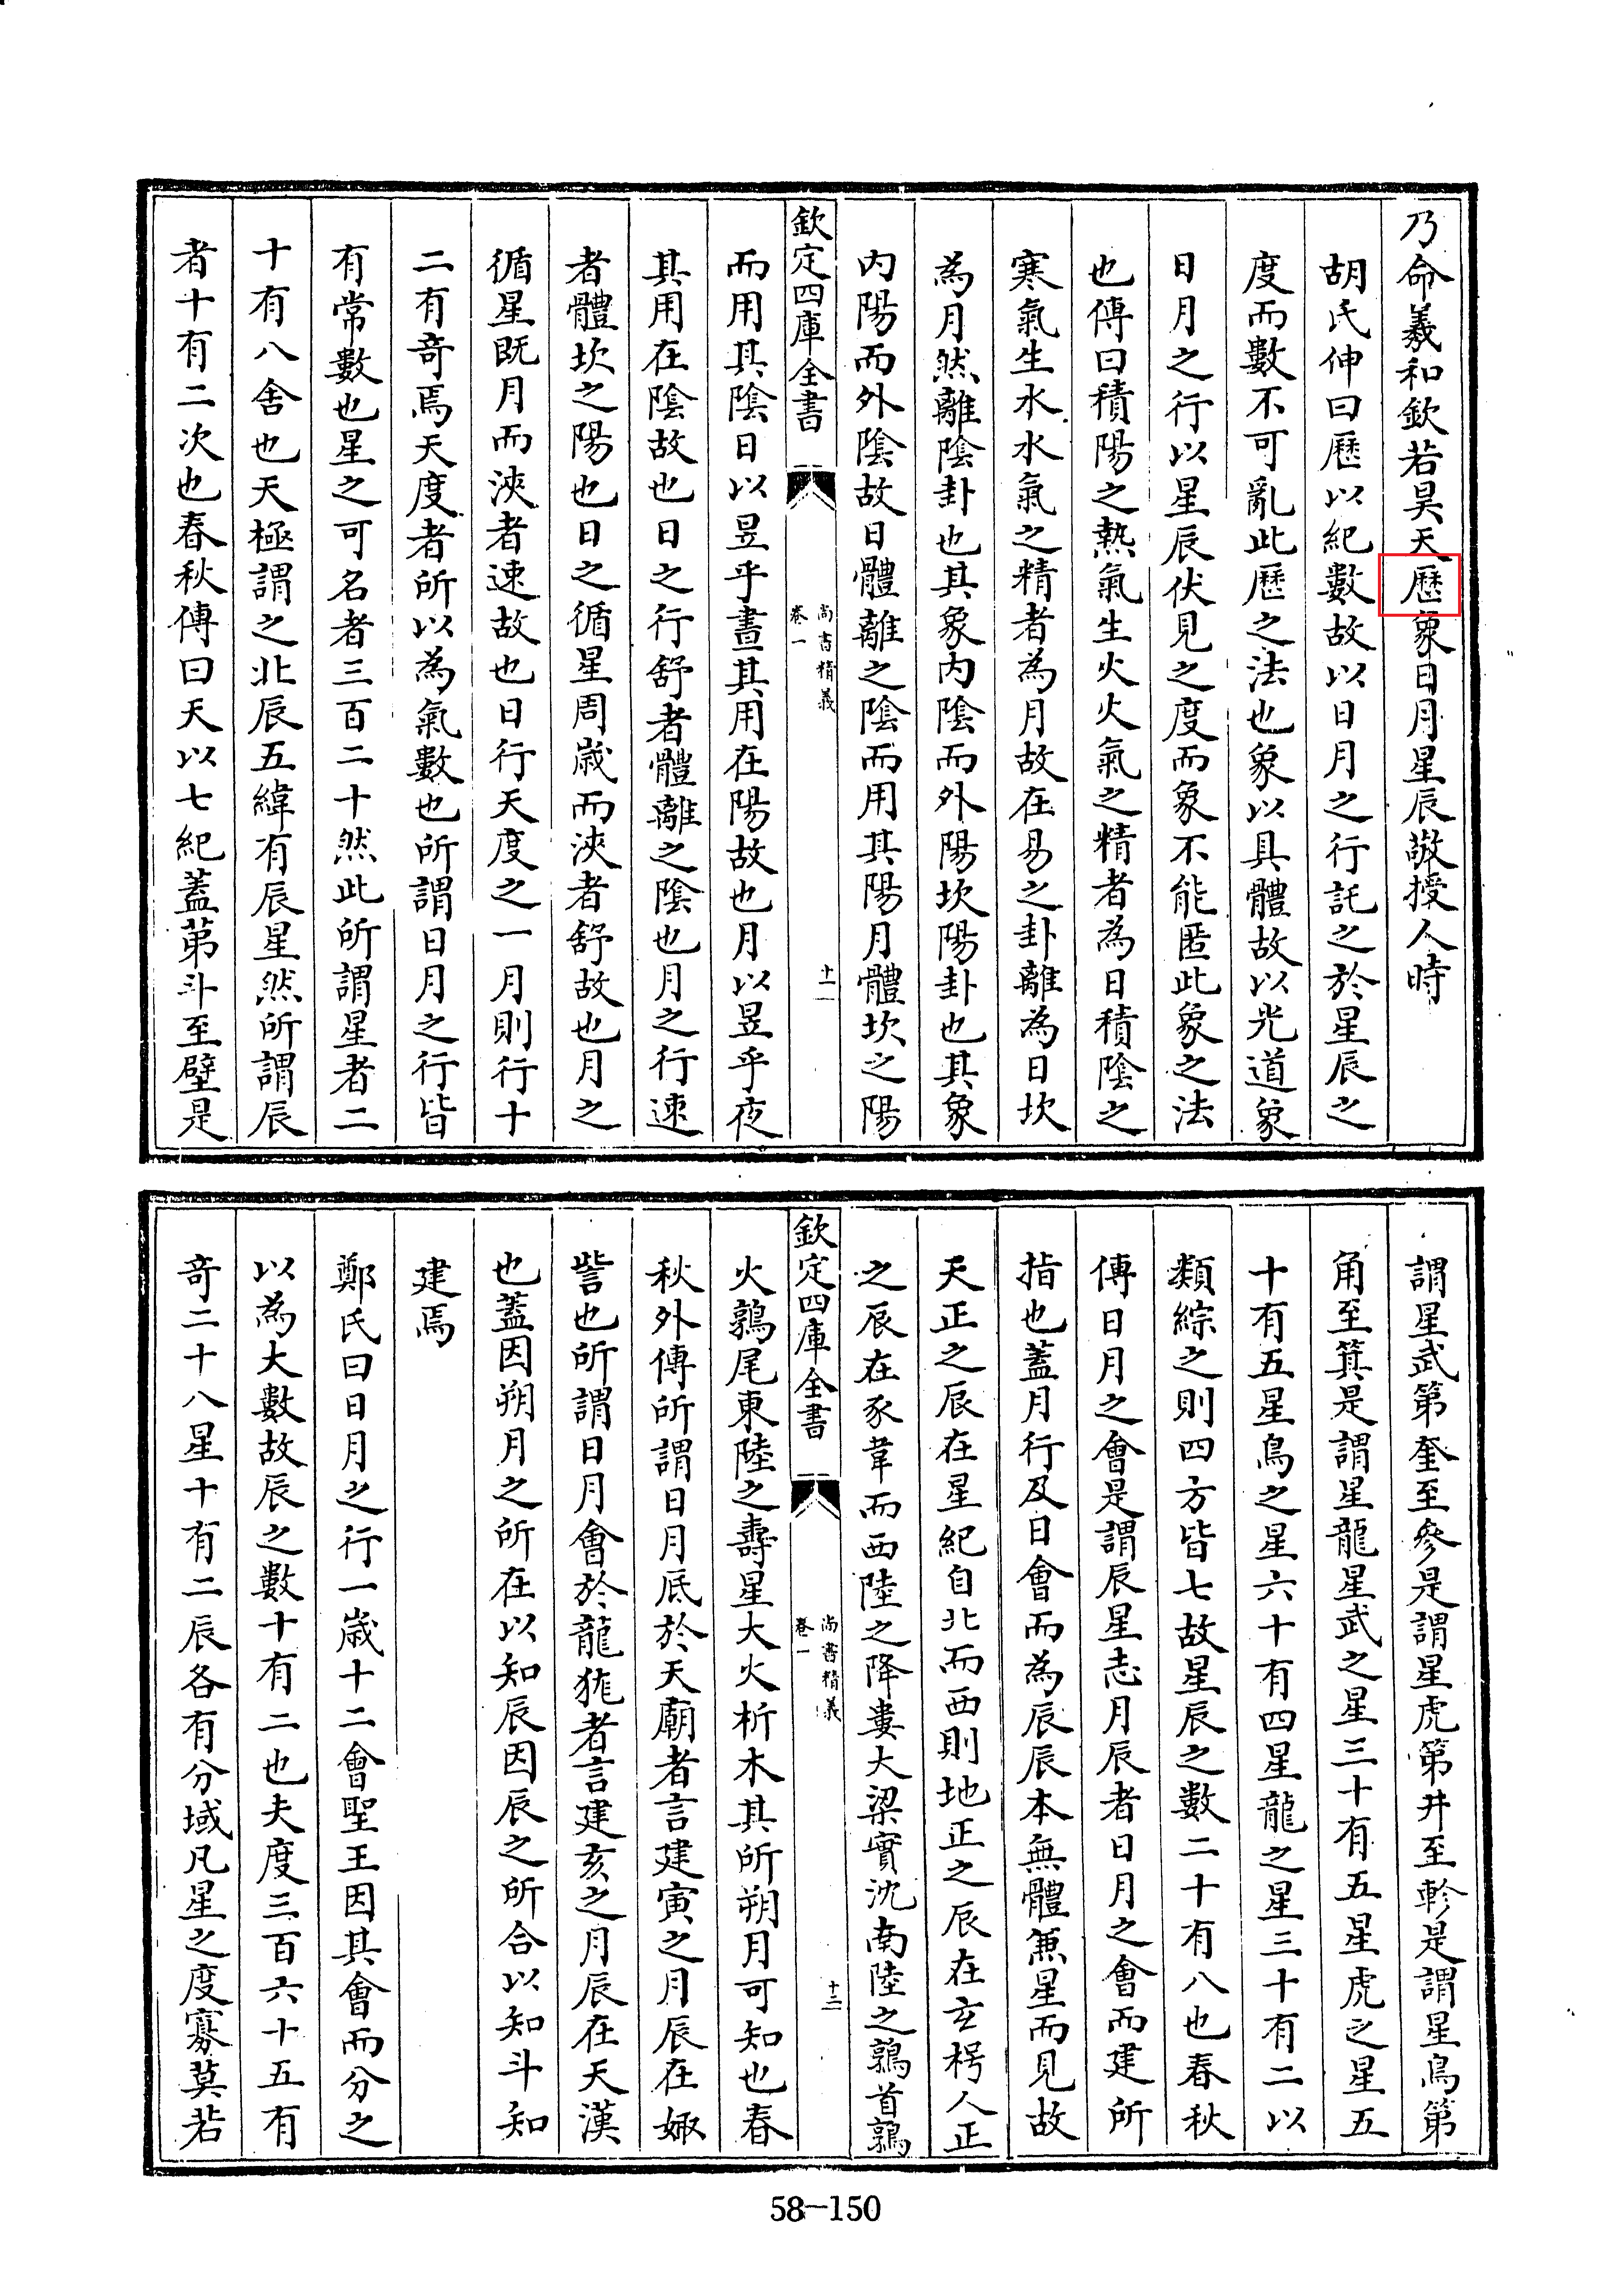 乃命羲和欽若昊天歷象日月星辰敬授人時
胡氏伸曰歷以紀數故以日月之行託之於星辰之
度而數不可亂此歷之法也象以具體故以光道象
日月之行以星辰伏見之度而象不能匿此象之法
也傳曰積陽之熱氣生火火氣之精者為日積陰之
寒氣生水水氣之精者為月故在易之卦離為日坎
為月然離陰卦也其象内陰而外陽坎陽卦也其象
内陽而外陰故日體離之陰而用其陽月體坎之陽
欽定四庫全書
尚書精義
卷一
十一
而用其陰日以昱乎晝其用在陽故也月以昱乎夜
其用在陰故也日之行舒者體離之陰也月之行速
者體坎之陽也日之循星周歲而浹者舒故也月之
循星既月而浹者速故也日行天度之一月則行十
二有竒焉天度者所以為氣數也所謂日月之行皆
有常數也星之可名者三百二十然此所謂星者二
十有八舍也天極謂之北辰五緯有辰星然所謂辰
者十有二次也春秋傳曰天以七紀蓋第斗至壁是
謂星武第奎至參是謂星虎第井至軫是謂星鳥第
角至箕是謂星龍星武之星三十有五星虎之星五
十有五星鳥之星六十有四星龍之星三十有二以
類綜之則四方皆七故星辰之數二十有八也春秋
傳日月之會是謂辰星志月辰者日月之會而建所
指也蓋月行及日會而為辰辰本無體無星而見故
天正之辰在星紀自北而西則地正之辰在玄枵人正
之辰在豕韋而西陸之降婁大梁實沈南陸之鶉首鶉
欽定四庫全書
尚書精義
卷一
十二
火鶉尾東陸之壽星大火析木其所朔月可知也春
秋外傳所謂日月底於天廟者言建寅之月辰在娵
訾也所謂日月會於龍𪕪者言建亥之月辰在天漢
也蓋因朔月之所在以知辰因辰之所合以知斗知
建焉
鄭氏曰日月之行一歲十二會聖王因其會而分之
以為大數故辰之數十有二也夫度三百六十五有
竒二十八星十有二辰各有分域凡星之度寡莫若
58—150